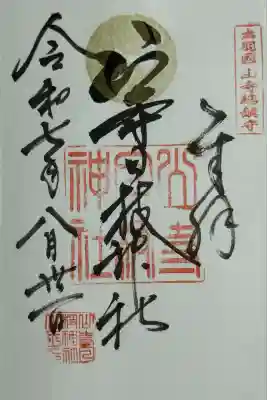 出羽國山寺總鎮守
奉拝
山寺日枝神社
山寺日枝神社
令和七年八月